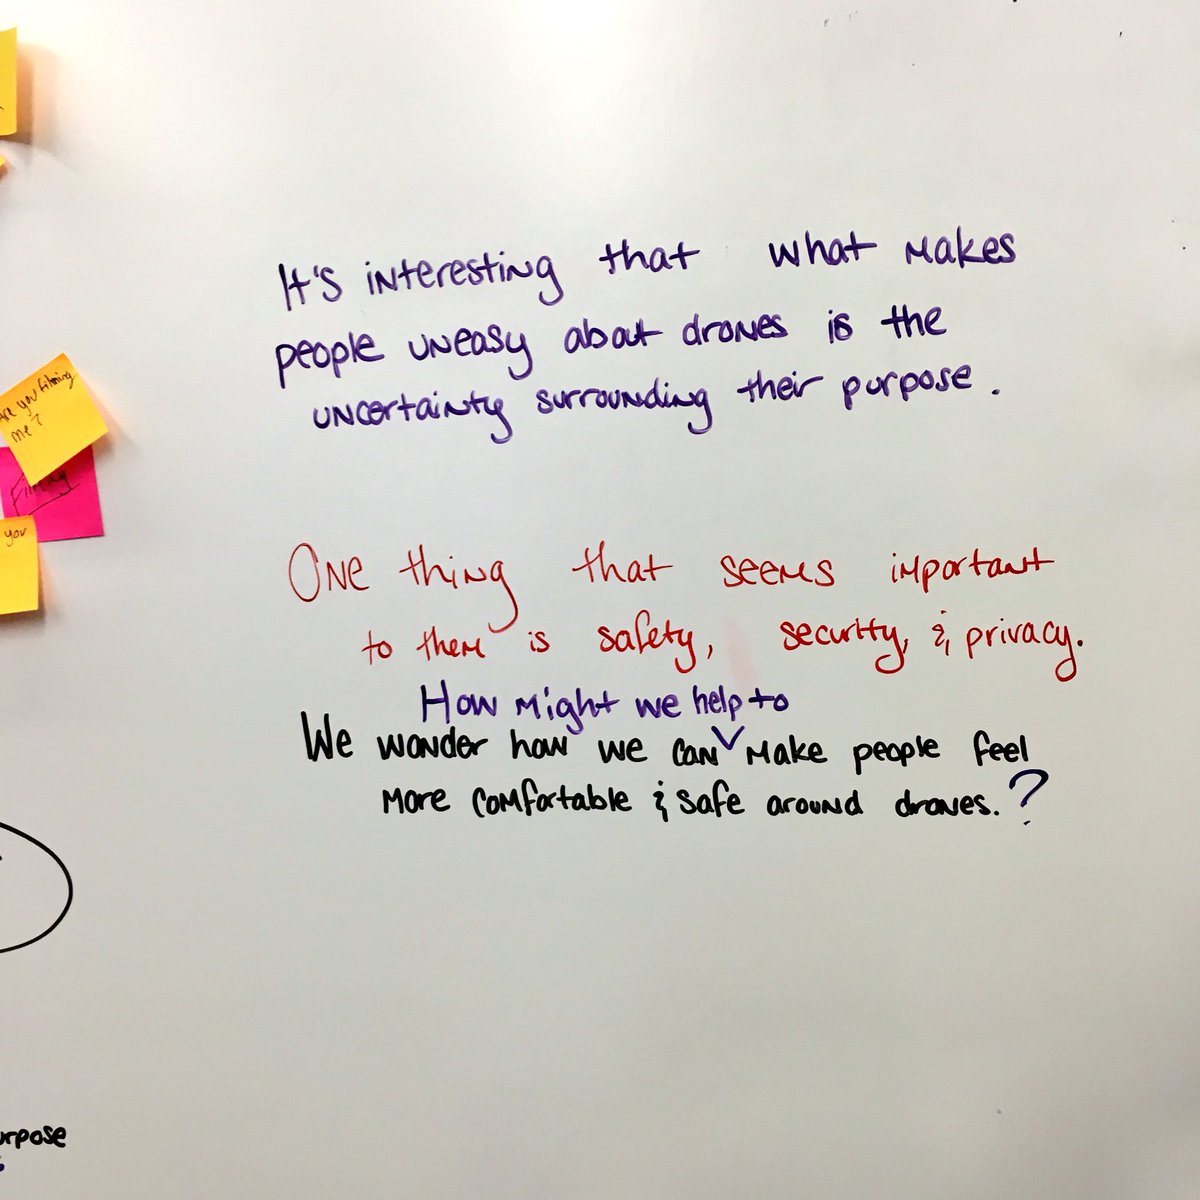 Are you filming
me?
Filming
you
It's interesting that what makes
people uneasy about drones is the
uncertainty surrounding their purpose.
One thing that seems important
to them is safety, security, & privacy.
How might we help to
We wonder how we can make people feel
more comfortable & safe around drones.?
urpose